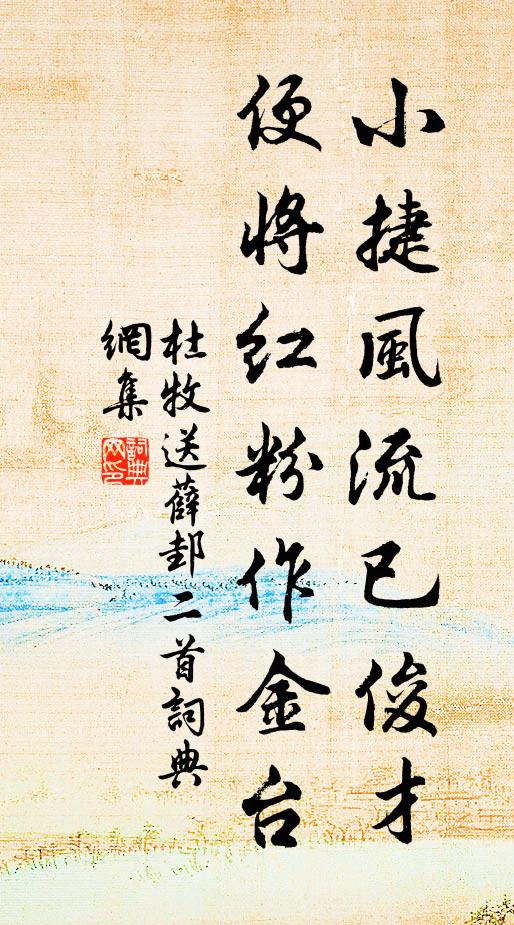 小捷風流已俊才
便將红粉作金台
杜牧送薛邽二首詞典
網集
詞典
网印